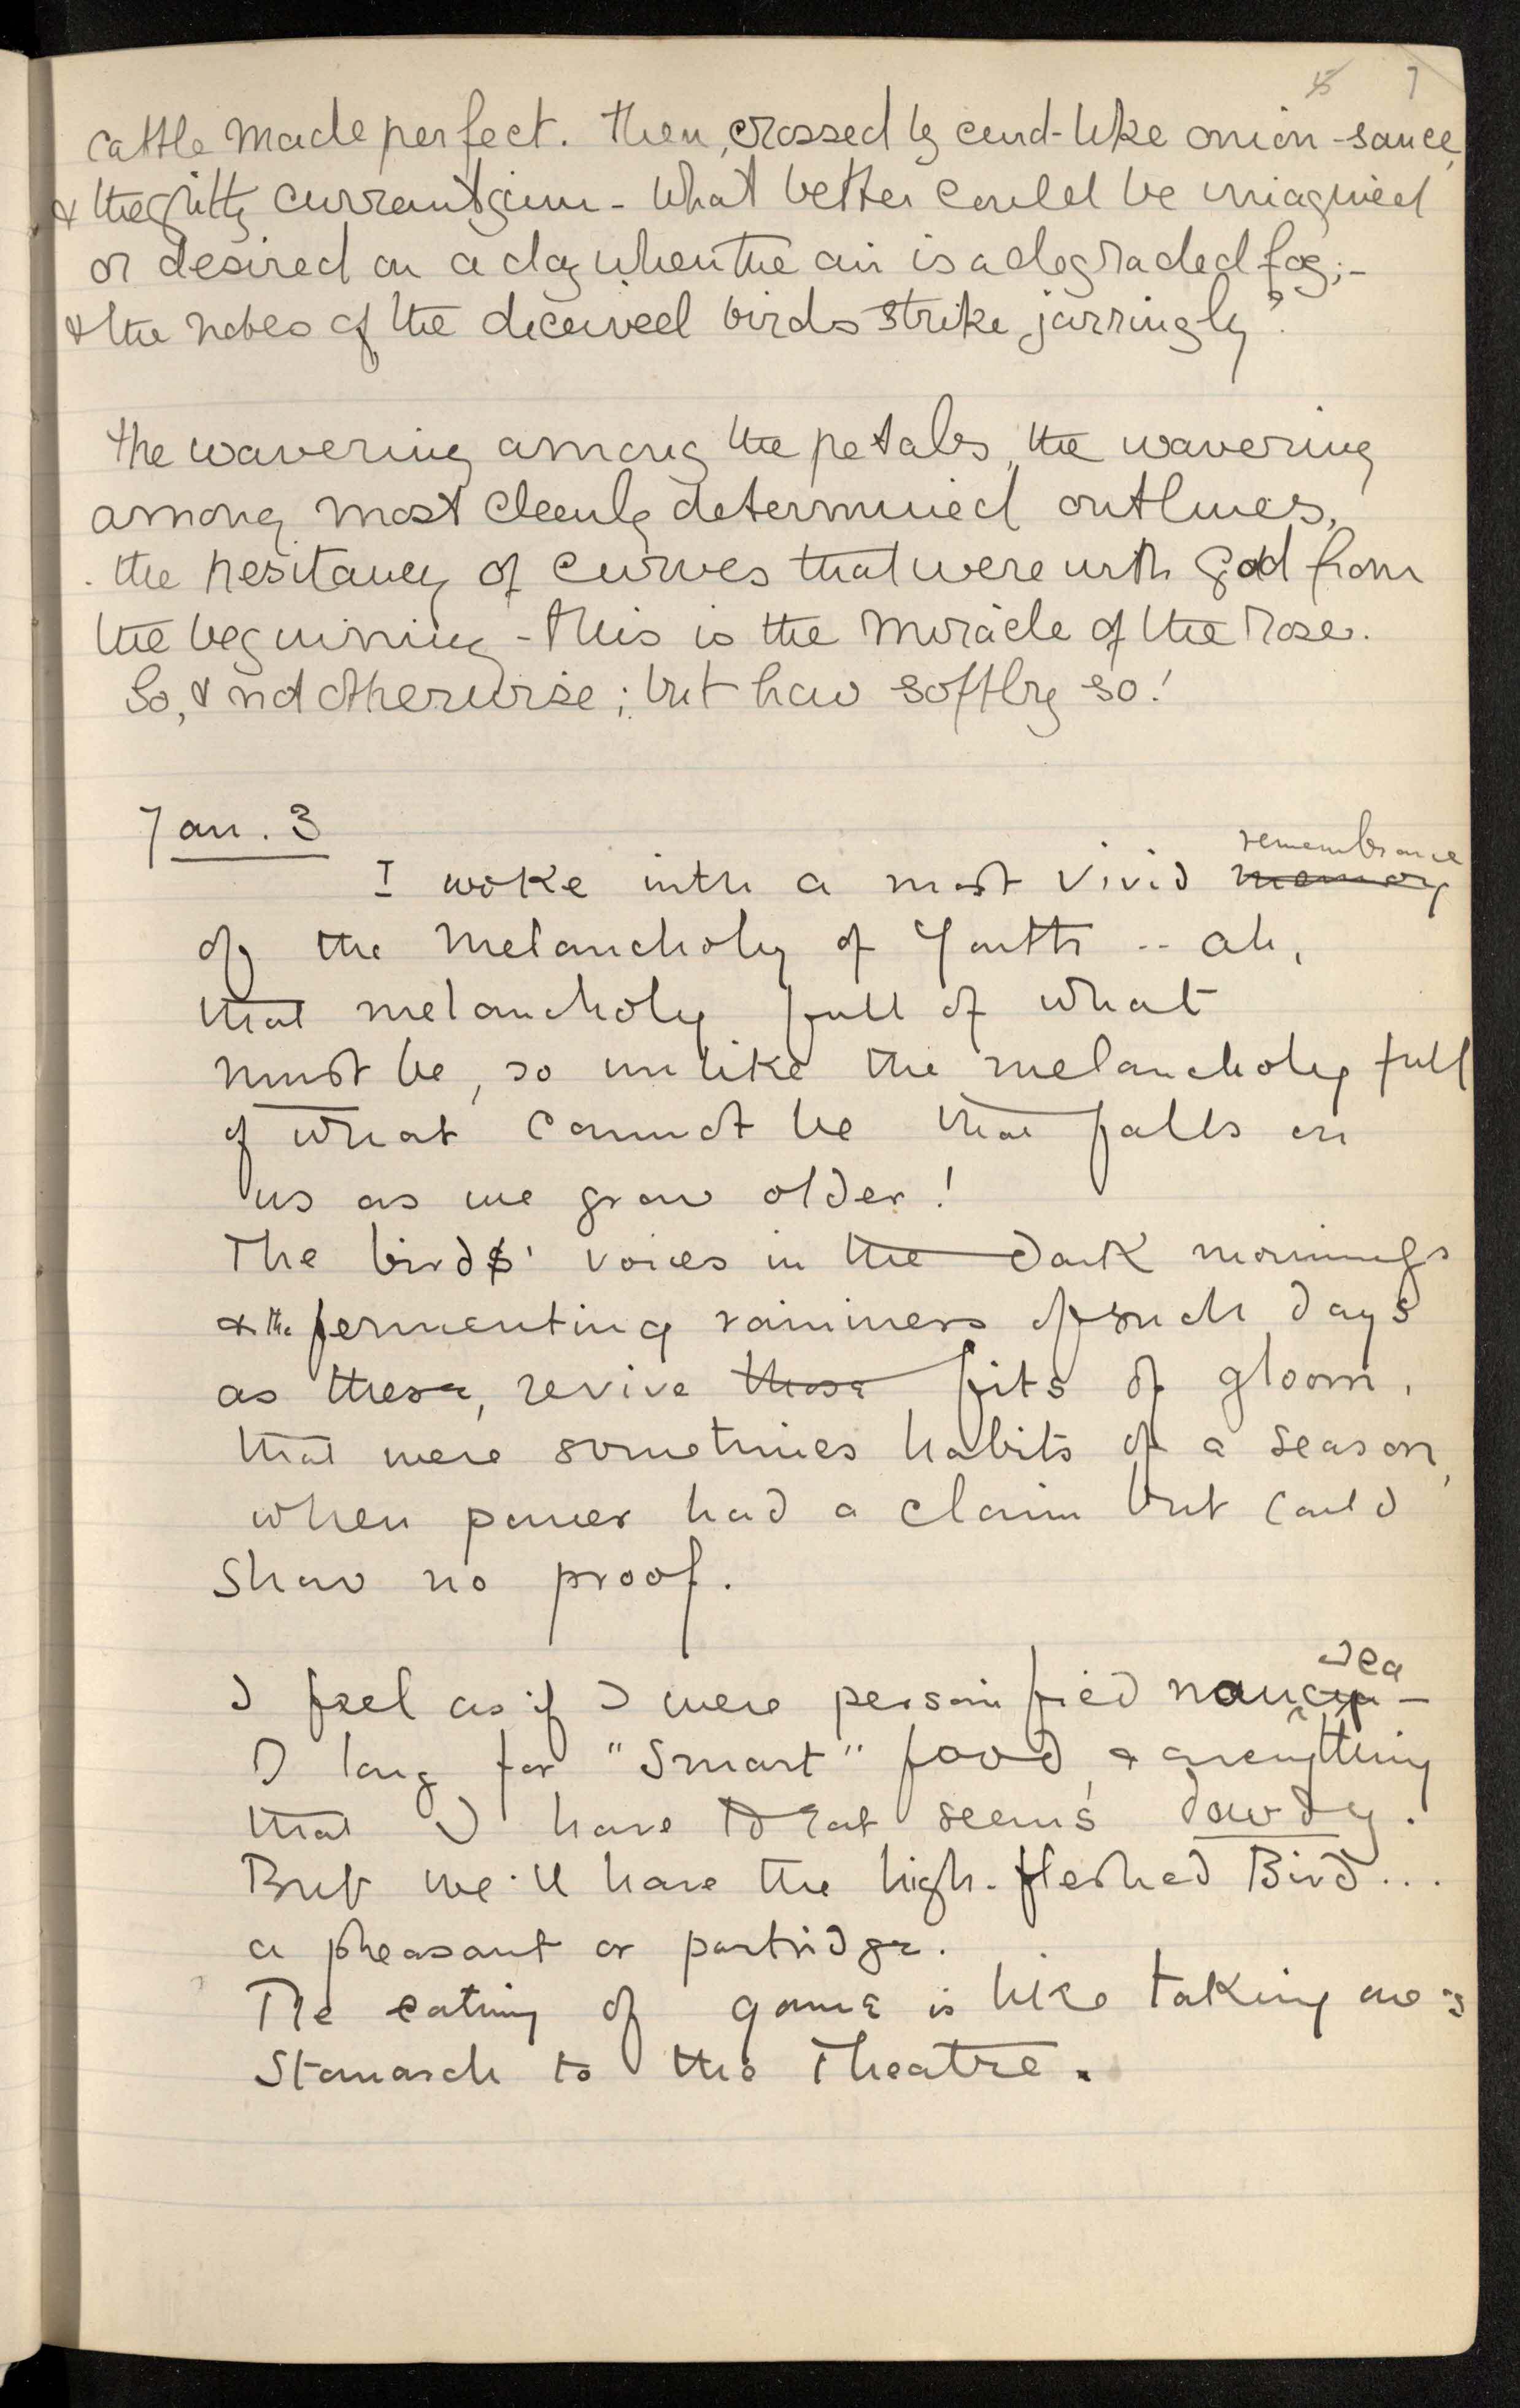 7
cattle made perfect. Then, crossed by curd-like onion-sauce,
& the gritty currant jam - What better could be imagined
or desired on a day when the air is a degraded fog;-
& the notes of the deceived birds strike jarringly?
The wavering among the petals, the wavering
among most cleanly determined outlines,
the hesitancy of curves that were with God from
the beginning - this is the miracle of the rose.
So, & not otherwise; but how softly so!
Jan. 3
remembrance
I woke with a most vivid memory
of the melancholy of Youth -- ah,
that melancholy full of what
must be, so unlike the melancholy full
of what cannot be that falls on
us as we grow older!
The birds' voices in the dark mornings
& the fermenting raininess of such days
as these, revive those fits of gloom,
that were sometimes habits of a season,
when power had a claim but could
show no proof.
sea
I feel as if I were personified nau -
I long for "Smart" food, & everything
that I have to eat seems dowdy.
But we'll have the high-fleshed Bird...
a pheasant or partridge.
The eating of game is like taking one's
Stomach to the Theatre.